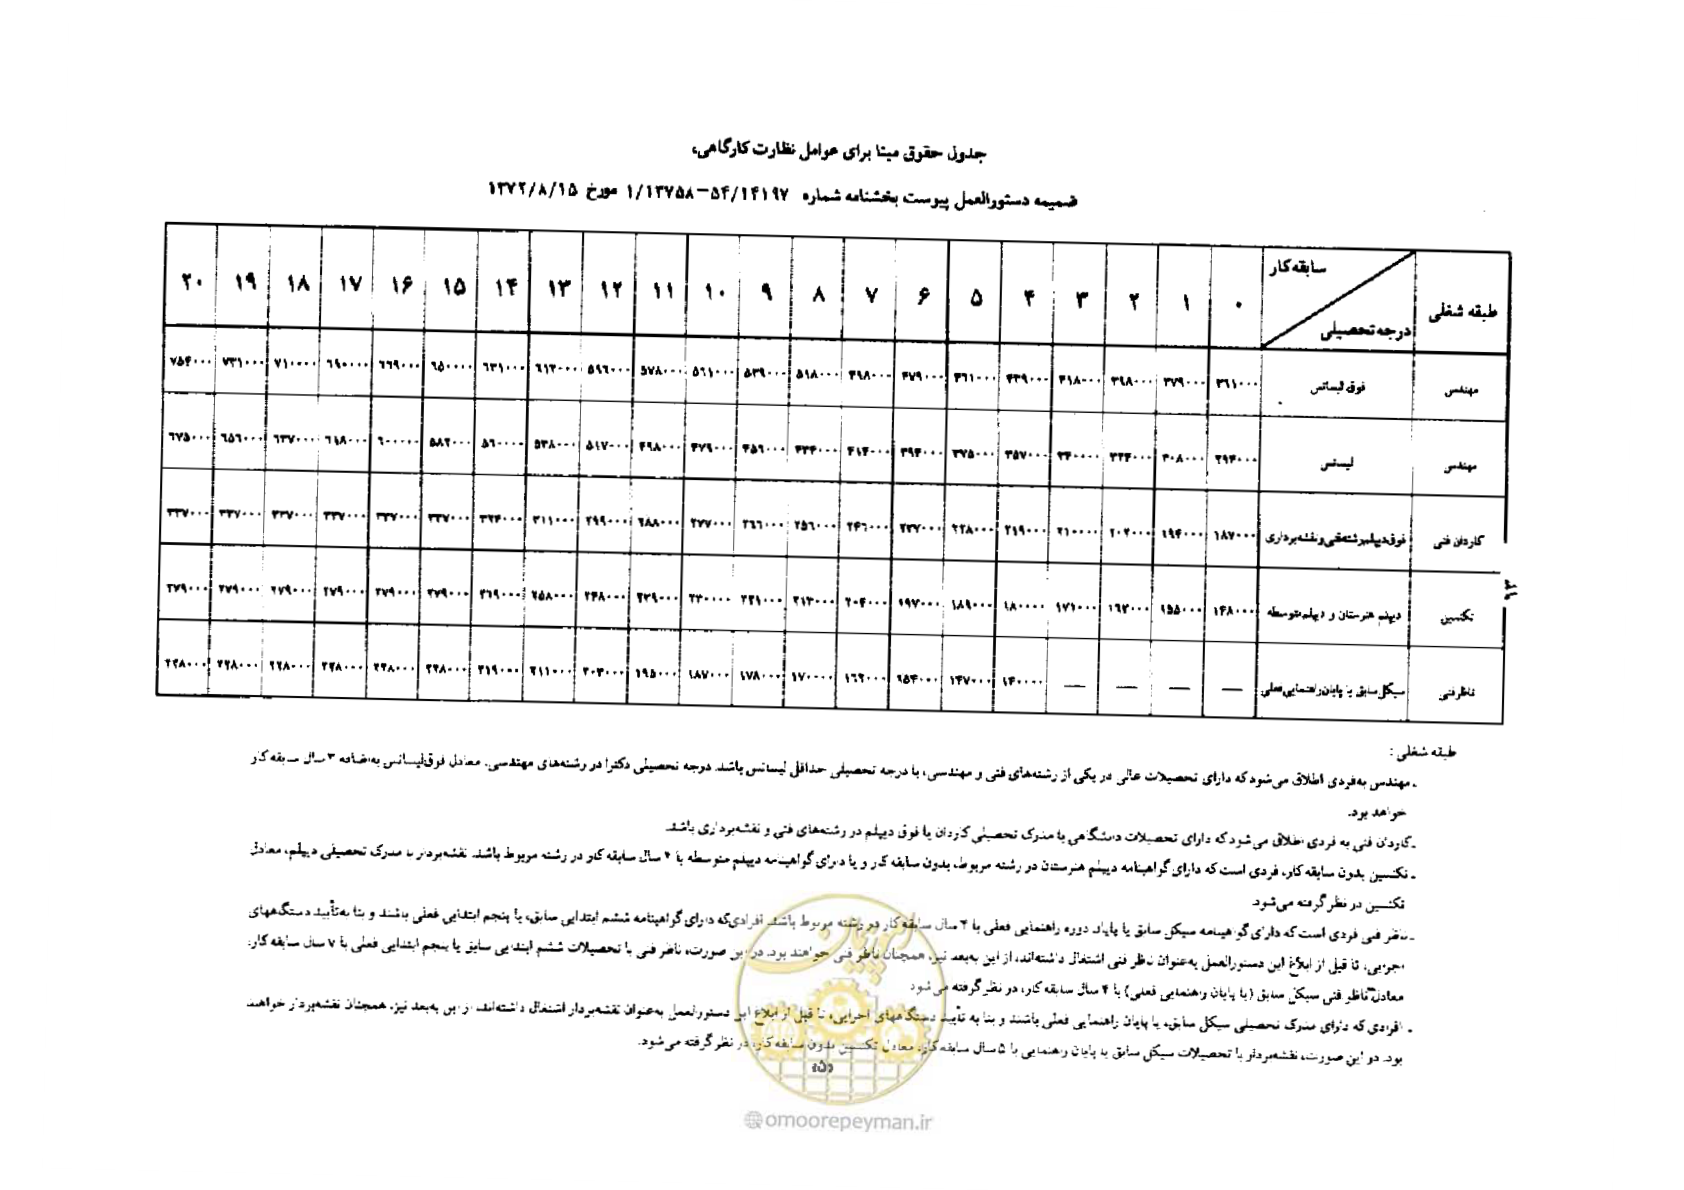 جدول حقوق مبنا برای عوامل نظارت کارگاهی،
ضمیمه دستورالعمل پیوست بخشنامه شماره ۵۴/۱۴۱۹۷-۱/۱۳۷۵۸ مورخ ۱۳۷۲/۸/۱۵
طبقه شغلی سابقه کار درجه تحصیلی ۰ ۱ ۲ ۳ ۴ ۵ ۶ ۷ ۸ ۹ ۱۰ ۱۱ ۱۲ ۱۳ ۱۴ ۱۵ ۱۶ ۱۷ ۱۸ ۱۹ ۲۰
مهندس فوق لیسانس ۳۶۱۰۰۰ ۳۷۹۰۰۰ ۳۹۸۰۰۰ ۴۱۸۰۰۰ ۴۳۹۰۰۰ ۴۶۱۰۰۰ ۴۷۹۰۰۰ ۴۹۸۰۰۰ ۵۱۸۰۰۰ ۵۳۹۰۰۰ ۵۶۱۰۰۰ ۵۷۸۰۰۰ ۵۹۶۰۰۰ ۶۱۳۰۰۰ ۶۳۱۰۰۰ ۶۵۰۰۰۰ ۶۶۹۰۰۰ ۶۹۰۰۰۰ ۷۱۰۰۰۰ ۷۳۱۰۰۰ ۷۵۴۰۰۰
مهندس لیسانس ۲۹۴۰۰۰ ۳۰۸۰۰۰ ۳۲۴۰۰۰ ۳۴۰۰۰۰ ۳۵۷۰۰۰ ۳۷۵۰۰۰ ۳۹۴۰۰۰ ۴۱۴۰۰۰ ۴۳۴۰۰۰ ۴۵۶۰۰۰ ۴۷۹۰۰۰ ۴۹۸۰۰۰ ۵۱۷۰۰۰ ۵۳۸۰۰۰ ۵۶۰۰۰۰ ۵۸۲۰۰۰ ۶۰۰۰۰۰ ۶۱۸۰۰۰ ۶۳۷۰۰۰ ۶۵۶۰۰۰ ۶۷۵۰۰۰
کاردان فنی فوق دیپلم رشته فنی و نقشه برداری ۱۸۷۰۰۰ ۱۹۴۰۰۰ ۲۰۲۰۰۰ ۲۱۰۰۰۰ ۲۱۹۰۰۰ ۲۲۸۰۰۰ ۲۳۷۰۰۰ ۲۴۶۰۰۰ ۲۵۶۰۰۰ ۲۶۶۰۰۰ ۲۷۷۰۰۰ ۲۸۸۰۰۰ ۲۹۹۰۰۰ ۳۱۱۰۰۰ ۳۲۴۰۰۰ ۳۳۷۰۰۰ ۳۳۷۰۰۰ ۳۳۷۰۰۰ ۳۳۷۰۰۰ ۳۳۷۰۰۰ ۳۳۷۰۰۰
تکنسین دیپلم هنرستان و دیپلم متوسطه ۱۴۸۰۰۰ ۱۵۵۰۰۰ ۱۶۳۰۰۰ ۱۷۱۰۰۰ ۱۸۰۰۰۰ ۱۸۹۰۰۰ ۱۹۷۰۰۰ ۲۰۴۰۰۰ ۲۱۳۰۰۰ ۲۲۱۰۰۰ ۲۳۰۰۰۰ ۲۳۹۰۰۰ ۲۴۸۰۰۰ ۲۵۸۰۰۰ ۲۶۹۰۰۰ ۲۷۹۰۰۰ ۲۷۹۰۰۰ ۲۷۹۰۰۰ ۲۷۹۰۰۰ ۲۷۹۰۰۰ ۲۷۹۰۰۰
ناظر فنی سیکل سابق یا پایان راهنمایی فعلی — — — — ۱۴۰۰۰۰ ۱۴۷۰۰۰ ۱۵۴۰۰۰ ۱۶۲۰۰۰ ۱۷۰۰۰۰ ۱۷۸۰۰۰ ۱۸۷۰۰۰ ۱۹۵۰۰۰ ۲۰۳۰۰۰ ۲۱۱۰۰۰ ۲۱۹۰۰۰ ۲۲۸۰۰۰ ۲۲۸۰۰۰ ۲۲۸۰۰۰ ۲۲۸۰۰۰ ۲۲۸۰۰۰ ۲۲۸۰۰۰
طبقه شغلی :
ـ مهندس به فردی اطلاق می‌شود که دارای تحصیلات عالی در یکی از رشته‌های فنی و مهندسی، با درجه تحصیلی حداقل لیسانس باشد. درجه تحصیلی دکترا در رشته‌های مهندسی، معادل فوق‌لیسانس به‌اضافه ۳ سال سابقه کار
خواهد بود.
ـ کاردان فنی به فردی اطلاق می‌شود که دارای تحصیلات دانشگاهی با مدرک تحصیلی کاردان یا فوق دیپلم در رشته‌های فنی و نقشه‌برداری باشد.
ـ تکنسین بدون سابقه کار، فردی است که دارای گواهینامه دیپلم هنرستان در رشته مربوط، بدون سابقه کار و یا دارای گواهینامه دیپلم متوسطه با ۲ سال سابقه کار در رشته مربوط باشد. نقشه‌بردار با مدرک تحصیلی دیپلم، معادل
تکنسین در نظر گرفته می‌شود.
ـ ناظر فنی فردی است که دارای گواهینامه سیکل سابق یا پایان دوره راهنمایی فعلی با ۴ سال سابقه کار در رشته مربوط باشد. افرادی‌که دارای گواهینامه ششم ابتدایی سابق، یا پنجم ابتدایی فعلی باشند و بنا به‌تأیید دستگاههای
اجرایی، تا قبل از ابلاغ این دستورالعمل به‌عنوان ناظر فنی اشتغال داشته‌اند، از این به‌بعد نیز، همچنان ناظر فنی خواهند بود. در این صورت، ناظر فنی با تحصیلات ششم ابتدایی سابق یا پنجم ابتدایی فعلی با ۷ سال سابقه کار،
معادل ناظر فنی سیکل سابق (یا پایان راهنمایی فعلی) با ۴ سال سابقه کار، در نظر گرفته می‌شود
ـ افرادی که دارای مدرک تحصیلی سیکل سابق، یا پایان راهنمایی فعلی باشند و بنا به تأیید دستگاههای اجرایی، تا قبل از ابلاغ این دستورالعمل به‌عنوان نقشه‌بردار اشتغال داشته‌اند، از این به‌بعد نیز، همچنان نقشه‌بردار خواهند
بود. در این صورت، نقشه‌بردار با تحصیلات سیکل سابق یا پایان راهنمایی با ۵ سال سابقه کار، معادل تکنسین بدون سابقه کار، در نظر گرفته می‌شود.
امور پیمان
@omoorepeyman.ir